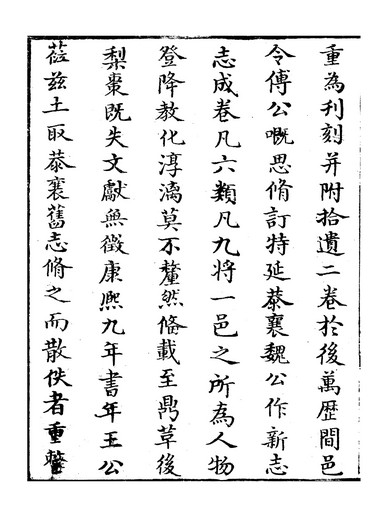 重為刊刻并附拾遺二卷於後萬歷間邑
令傅公嘅思脩訂特延恭襄魏公作新志
志成卷凡六類凡九将一邑之所為人物
登降教化淳漓莫不釐然俻載至鼎革後
梨棗既失文獻無徵康熙九年書年王公
蒞兹土取恭襄舊志脩之而散佚者重